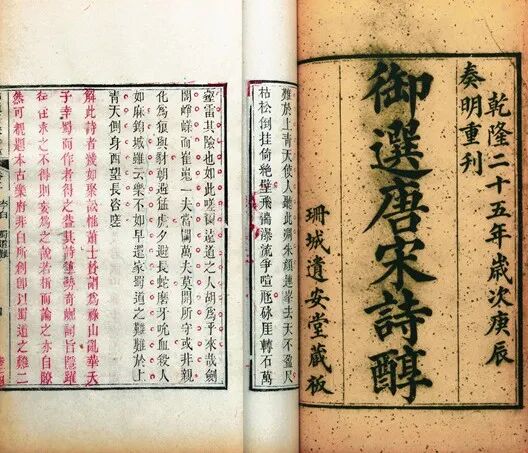 乾隆二十五年歲次庚辰
奏明重刊
御選唐宋詩醇
珊城遺安堂藏板
難於上青天使人聽此凋朱顏連峯去天不盈尺
枯松倒挂倚絶壁飛湍瀑流爭喧豗砯崖轉石萬
壑雷其險也如此嗟爾遠道之人胡為乎來哉劍
閣崢嶸而崔嵬一夫當關萬夫莫開所守或非親
化為狼與豺朝避猛虎夕避長蛇磨牙吮血殺人
如麻錦城雖云樂不如早還家蜀道之難難於上
青天側身西望長咨嗟
解此詩者幾如聚訟惟蕭士贇謂為祿山亂華天
子幸蜀而作者得之葢其詩筆勢奇崛詞旨隱躍
往往求之不得則妄為之說若指而論之亦自瞭
然可題本古樂府非白所創即以蜀道之難二
李白 蜀道難